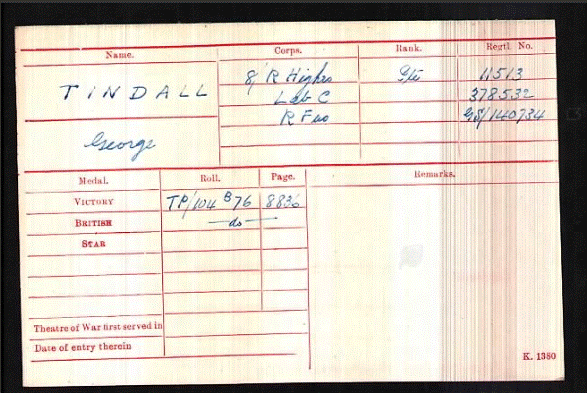 Name. Corps. Rank. Regtl. No.
TINDALL 8/R Highrs Pte 11513
Lab C 378532
George R Fus GS/140734
Medal. Roll. Page. Remarks.
VICTORY TP/104 B76 8836
BRITISH —do—
STAR
Theatre of War first served in
Date of entry therein
K. 1380